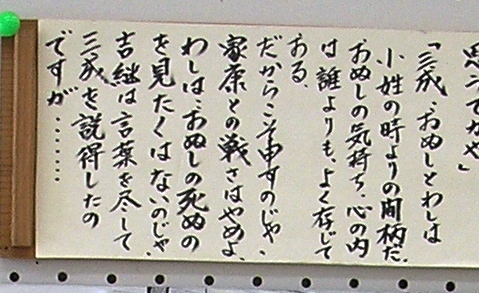 思うてか や」
「三成、おぬしとわしは
小姓の時よりの間柄だ。
おぬしの気持ち、心の内
は誰よりも、よく存じて
おる、
だからこそ申すのじゃ、
家康との戦さはやめよ、
わしは、おぬしの死ぬの
を見たくはないのじゃ、
吉継は言葉を尽して
三成を説得したの
ですが、………